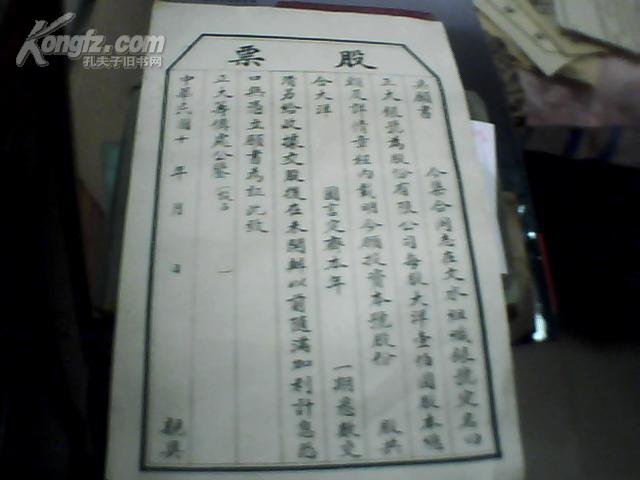 Kongfz.com
孔夫子旧书网
股票
立願書 今集合同志在文水組織銀號定名曰
三大銀號為股份有限公司每股大洋壹伯圓股本總
額及詳情章程內載明今願投資本號股份 股共
合大洋 圓言定本年 一期悉數交
清另給收據交股後在未開幕以前隨滿加利計息恐
口無憑立願書為証此致
三大籌備處公鑒
中華民國十 年 月 日 親具